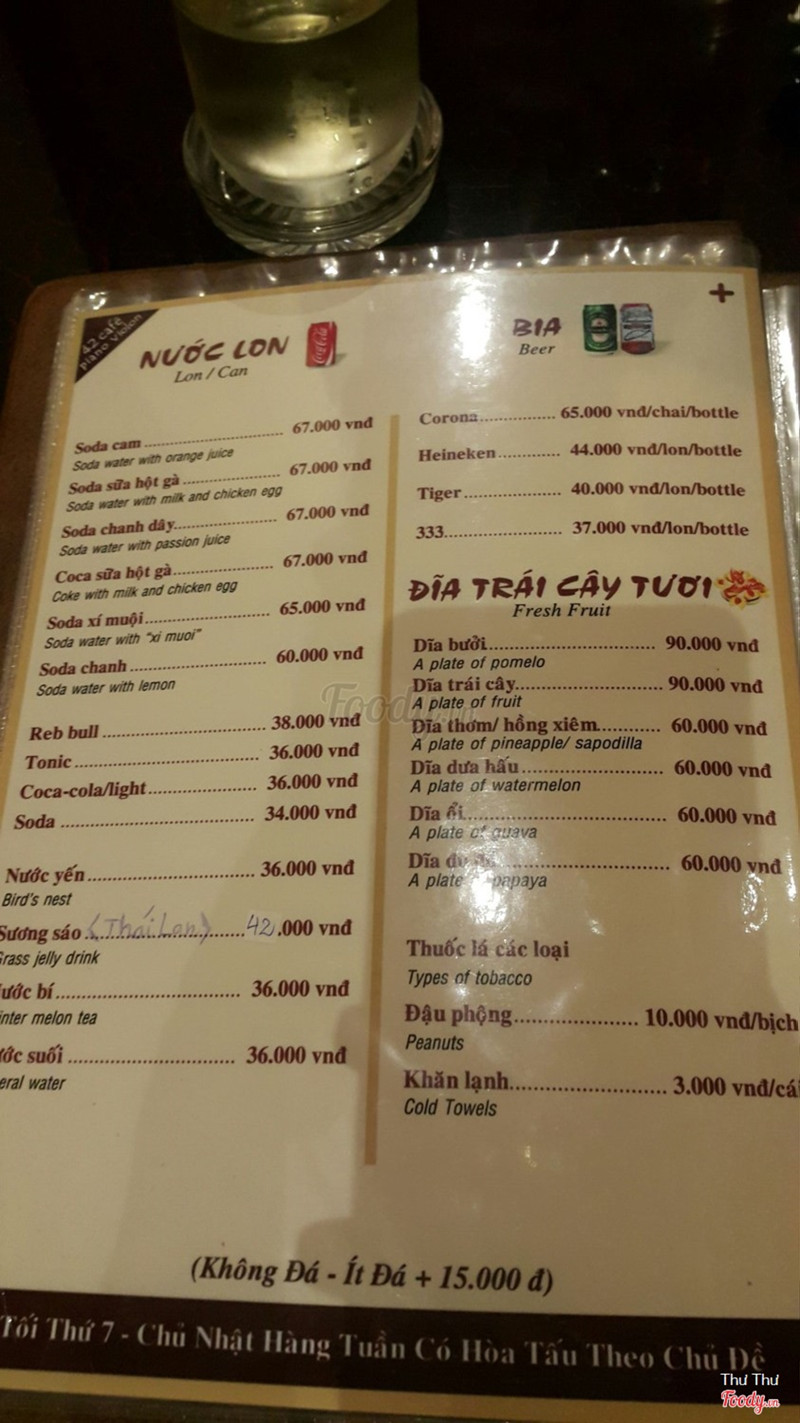 42 café
Piano Violon
NƯỚC LON
Lon / Can
Soda cam ........ 67.000 vnđ
Soda water with orange juice
Soda sữa hột gà ........ 67.000 vnđ
Soda water with milk and chicken egg
Soda chanh dây ........ 67.000 vnđ
Soda water with passion juice
Coca sữa hột gà ........ 67.000 vnđ
Coke with milk and chicken egg
Soda xí muội ........ 65.000 vnđ
Soda water with "xi muoi"
Soda chanh ........ 60.000 vnđ
Soda water with lemon
Reb bull ........ 38.000 vnđ
Tonic ........ 36.000 vnđ
Coca-cola/light ........ 36.000 vnđ
Soda ........ 34.000 vnđ
Nước yến ........ 36.000 vnđ
Bird's nest
Sương sáo (Thái Lan) ........ 42.000 vnđ
Grass jelly drink
ước bí ........ 36.000 vnđ
inter melon tea
ớc suối ........ 36.000 vnđ
eral water
+
BIA
Beer
Corona ........ 65.000 vnđ/chai/bottle
Heineken ........ 44.000 vnđ/lon/bottle
Tiger ........ 40.000 vnđ/lon/bottle
333 ........ 37.000 vnđ/lon/bottle
ĐĨA TRÁI CÂY TƯƠI
Fresh Fruit
Dĩa bưởi ........ 90.000 vnđ
A plate of pomelo
Dĩa trái cây ........ 90.000 vnđ
A plate of fruit
Dĩa thơm/ hồng xiêm ........ 60.000 vnđ
A plate of pineapple/ sapodilla
Dĩa dưa hấu ........ 60.000 vnđ
A plate of watermelon
Dĩa ổi ........ 60.000 vnđ
A plate of guava
Dĩa ........ 60.000 vnđ
A plate papaya
Thuốc lá các loại
Types of tobacco
Đậu phộng ........ 10.000 vnđ/bịch
Peanuts
Khăn lạnh ........ 3.000 vnđ/cái
Cold Towels
(Không Đá - Ít Đá + 15.000 đ)
Tối Thứ 7 - Chủ Nhật Hàng Tuần Có Hòa Tấu Theo Chủ Đề
Thư Thư
Foody.vn